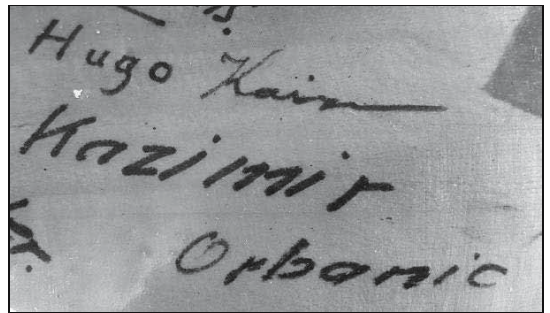 Hugo Kain
Kazimir
Orbanic